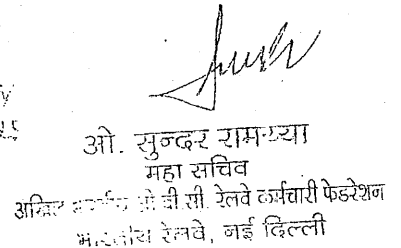 ओ. सुन्दर रामय्या
महा सचिव
अखिल ओ.बी.सी. रेलवे कर्मचारी फेडरेशन
भारतीय रेलवे, नई दिल्ली